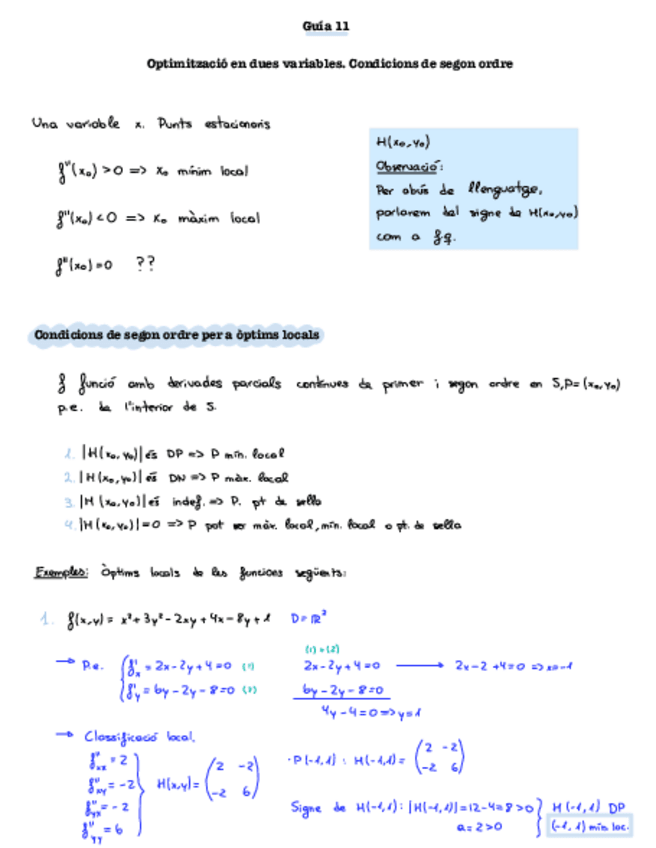 Guía 11
Optimització en dues variables. Condicions de segon ordre
Una variable x. Punts estacionaris
f''(x₀) > 0 => x₀ mínim local
f''(x₀) < 0 => x₀ màxim local
f''(x₀) = 0 ??
H(x₀,y₀)
Observació:
Per abús de llenguatge,
parlarem del signe de H(x₀,y₀)
com a f.q.
Condicions de segon ordre per a òptims locals
f funció amb derivades parcials contínues de primer i segon ordre en S, P=(x₀,y₀)
p.e. de l'interior de S.
1. |H(x₀,y₀)| és DP => P mín. local
2. |H(x₀,y₀)| és DN => P màx. local
3. |H(x₀,y₀)| és indef. => P. pt de sella
4. |H(x₀,y₀)| = 0 => P pot ser màx. local, mín. local o pt. de sella
Exemples: Òptims locals de les funcions següents:
1. f(x,y) = x² + 3y² - 2xy + 4x - 8y + 1 D = ℝ²
→ P.e. { f'x = 2x - 2y + 4 = 0 (1)
f'y = 6y - 2y - 8 = 0 (2)
(1) + (2)
2x - 2y + 4 = 0 → 2x - 2 + 4 = 0 => x = -1
6y - 2y - 8 = 0
4y - 4 = 0 => y = 1
→ Classificació local.
f''xx = 2
f''xy = -2
f''yx = -2
f''yy = 6
H(x,y) = (2 -2
-2 6)
· P(-1,1) : H(-1,1) = (2 -2
-2 6)
Signe de H(-1,1): |H(-1,1)| = 12 - 4 = 8 > 0 } H(-1,1) DP
a = 2 > 0 } (-1,1) mín. loc.